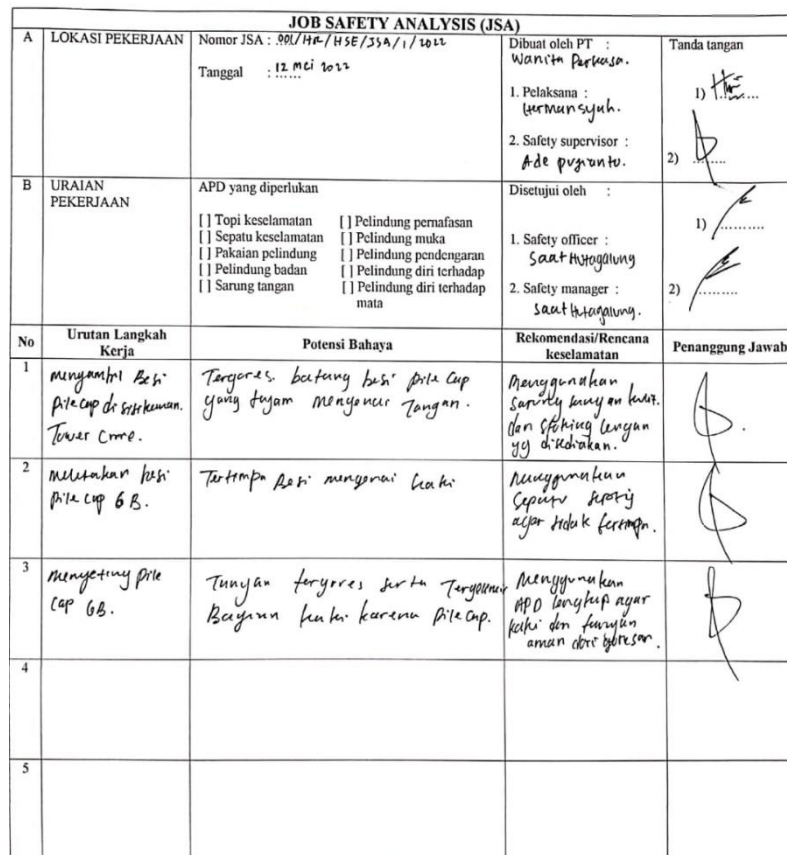 JOB SAFETY ANALYSIS (JSA)
A
LOKASI PEKERJAAN
Nomor JSA : 001/HR/HSE/JSA/1/2022
Tanggal : 12 Mei 2022
Dibuat oleh PT :
Wanita Perkasa.
1. Pelaksana :
Hermansyah.
2. Safety supervisor :
Ade pugianto.
Tanda tangan
1)
2)
B
URAIAN
PEKERJAAN
APD yang diperlukan
[ ] Topi keselamatan [ ] Pelindung pernafasan
[ ] Sepatu keselamatan [ ] Pelindung muka
[ ] Pakaian pelindung [ ] Pelindung pendengaran
[ ] Pelindung badan [ ] Pelindung diri terhadap
[ ] Sarung tangan [ ] Pelindung diri terhadap
mata
Disetujui oleh :
1. Safety officer :
Saat Hutagalung
2. Safety manager :
Saat Hutagalung.
1)
2)
No
Urutan Langkah
Kerja
Potensi Bahaya
Rekomendasi/Rencana
keselamatan
Penanggung Jawab
1
mengambil Besi
pile cap di
Tower Crne.
Tergores batang besi pile Cap
yang tajam mengenai Tangan.
Menggunakan
sarung tangan kulit.
dan stoking lengan
yg disediakan.
2
meletakan besi
pile cap GB.
Tertimpa Besi mengenai kaki
menggunakan
Sepatu
agar tidak tertimpa.
3
menyeting pile
cap GB.
Tangan tergores serta
Bagian kaki karena pile cap.
Menggunakan
APD lengkap agar
kaki dan tangan
aman dari goresan.
4
5